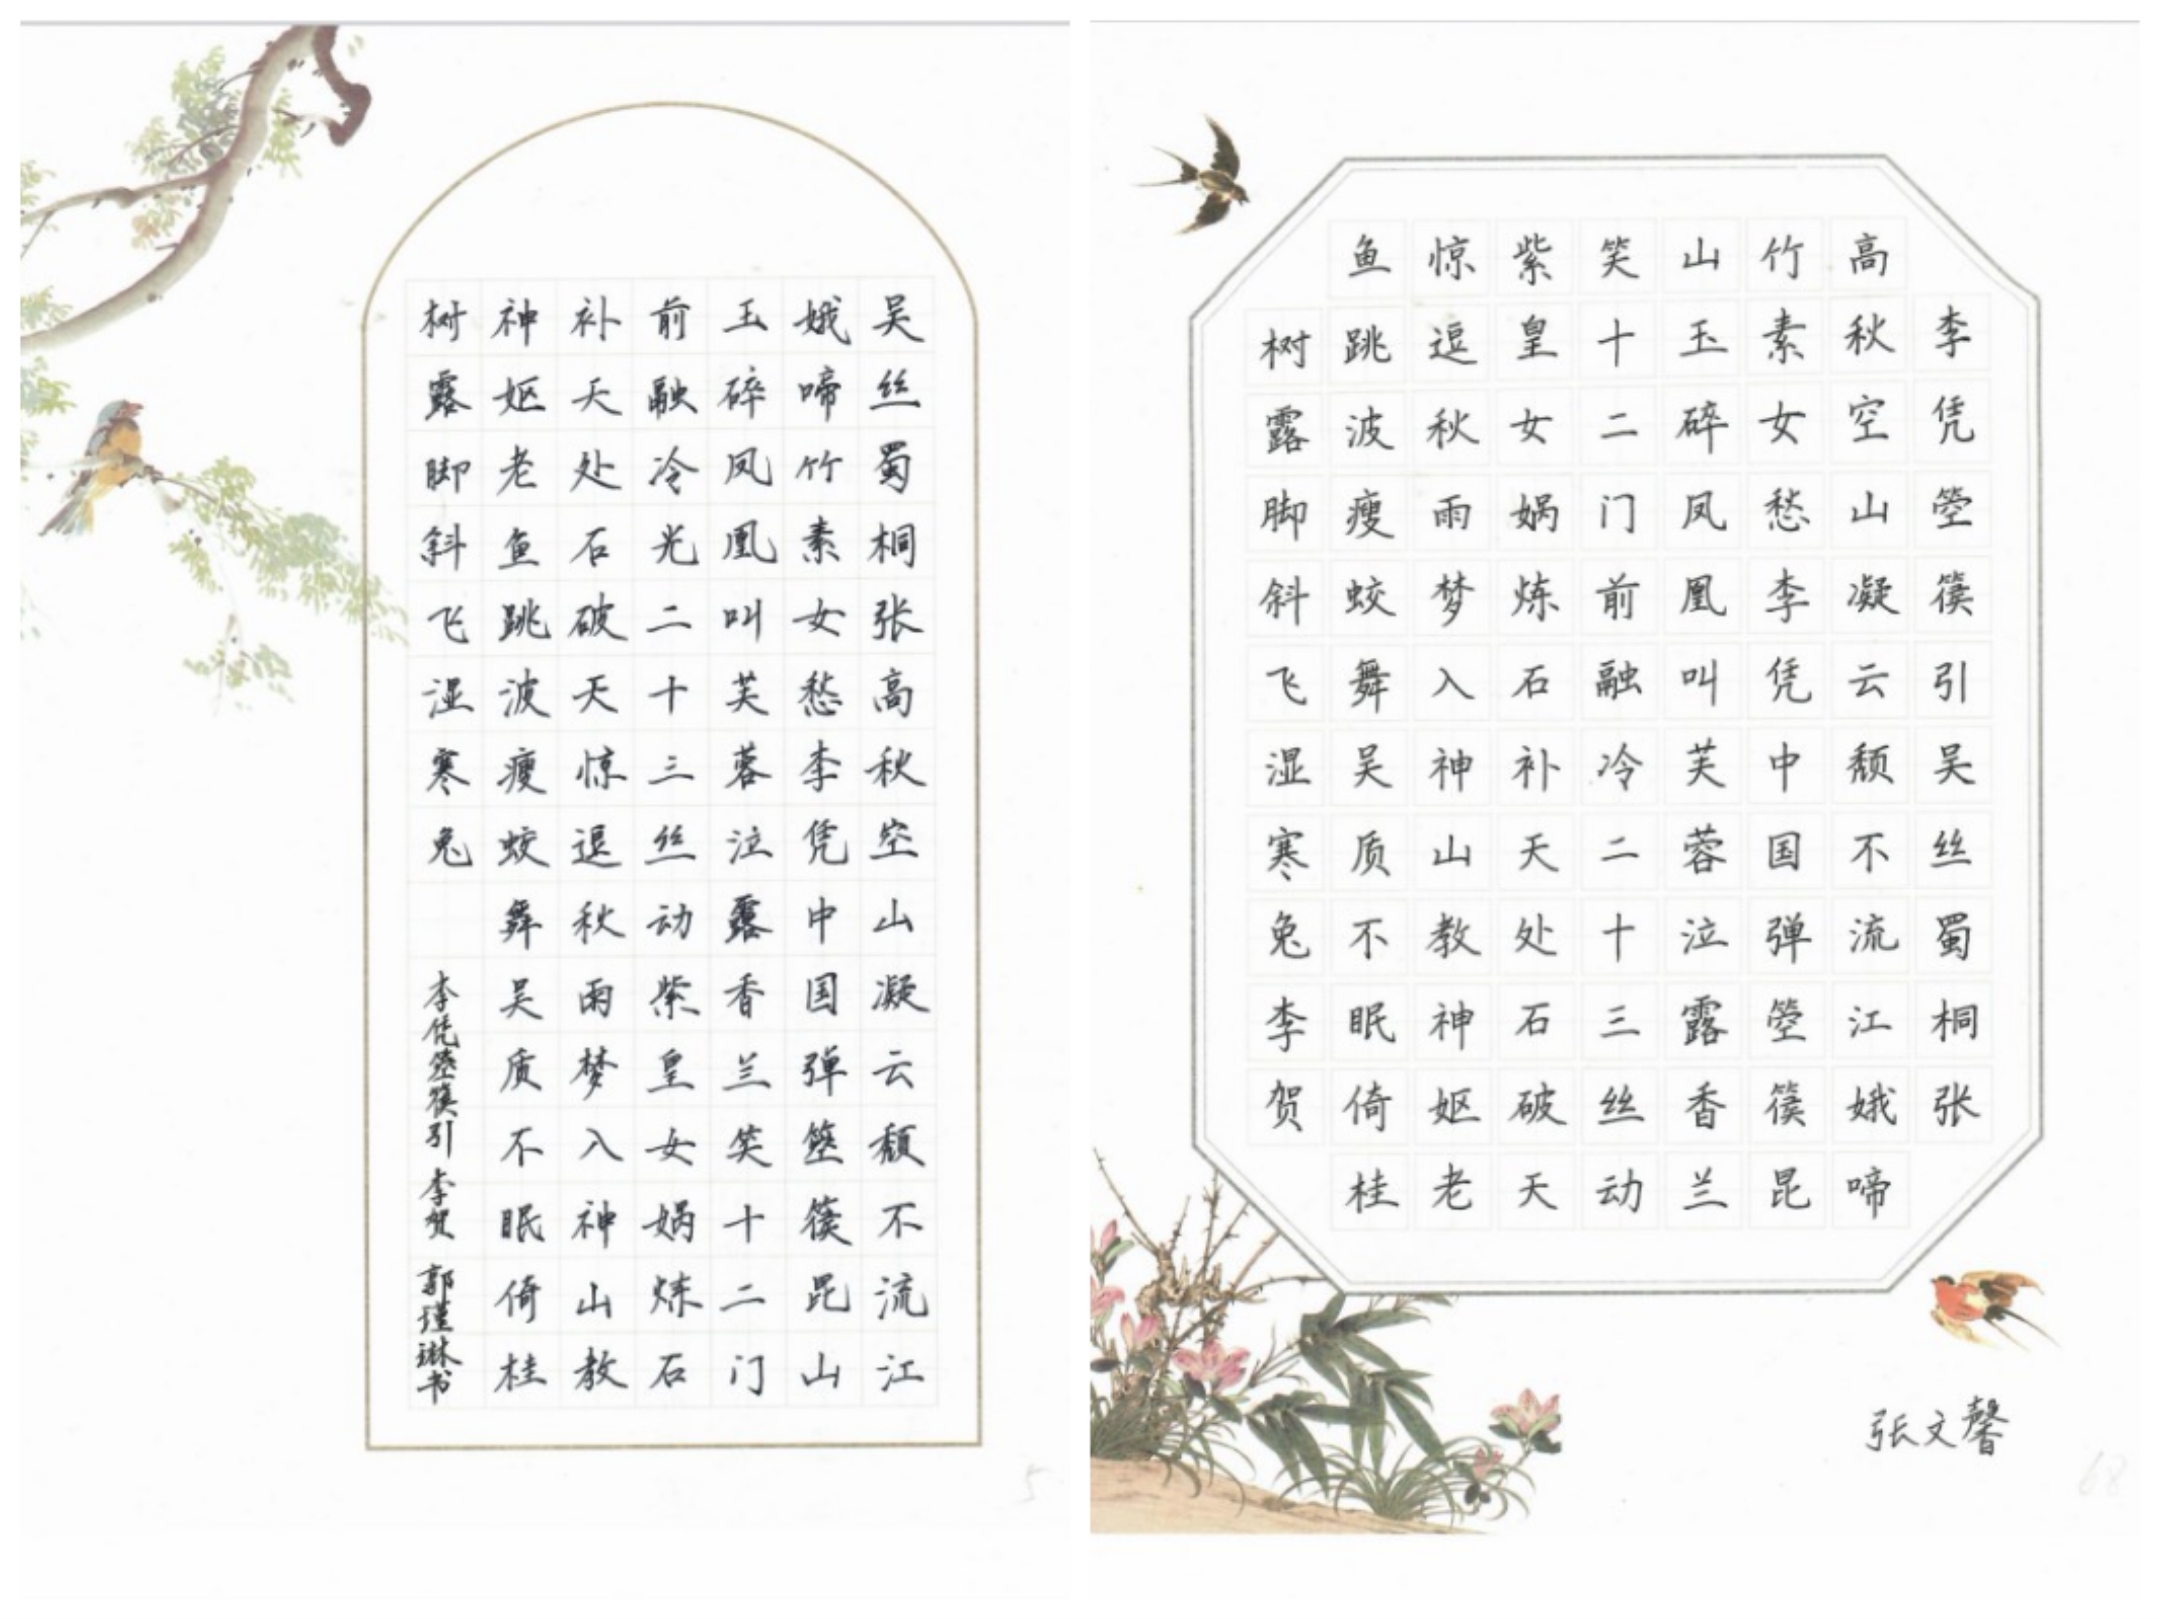 吴丝蜀桐张高秋空山凝云颓不流江
娥啼竹素女愁李凭中国弹箜篌昆山
玉碎凤凰叫芙蓉泣露香兰笑十二门
前融冷光二十三丝动紫皇女娲炼石
补天处石破天惊逗秋雨梦入神山教
神妪老鱼跳波瘦蛟舞吴质不眠倚桂
树露脚斜飞湿寒兔
李凭箜篌引 李贺 郭瑾琳书
5
李凭箜篌引吴丝蜀桐张
高秋空山凝云颓不流江娥啼
竹素女愁李凭中国弹箜篌昆
山玉碎凤凰叫芙蓉泣露香兰
笑十二门前融冷二十三丝动
紫皇女娲炼石补天处石破天
惊逗秋雨梦入神山教神妪老
鱼跳波瘦蛟舞吴质不眠倚桂
树露脚斜飞湿寒兔李贺
张文馨
68